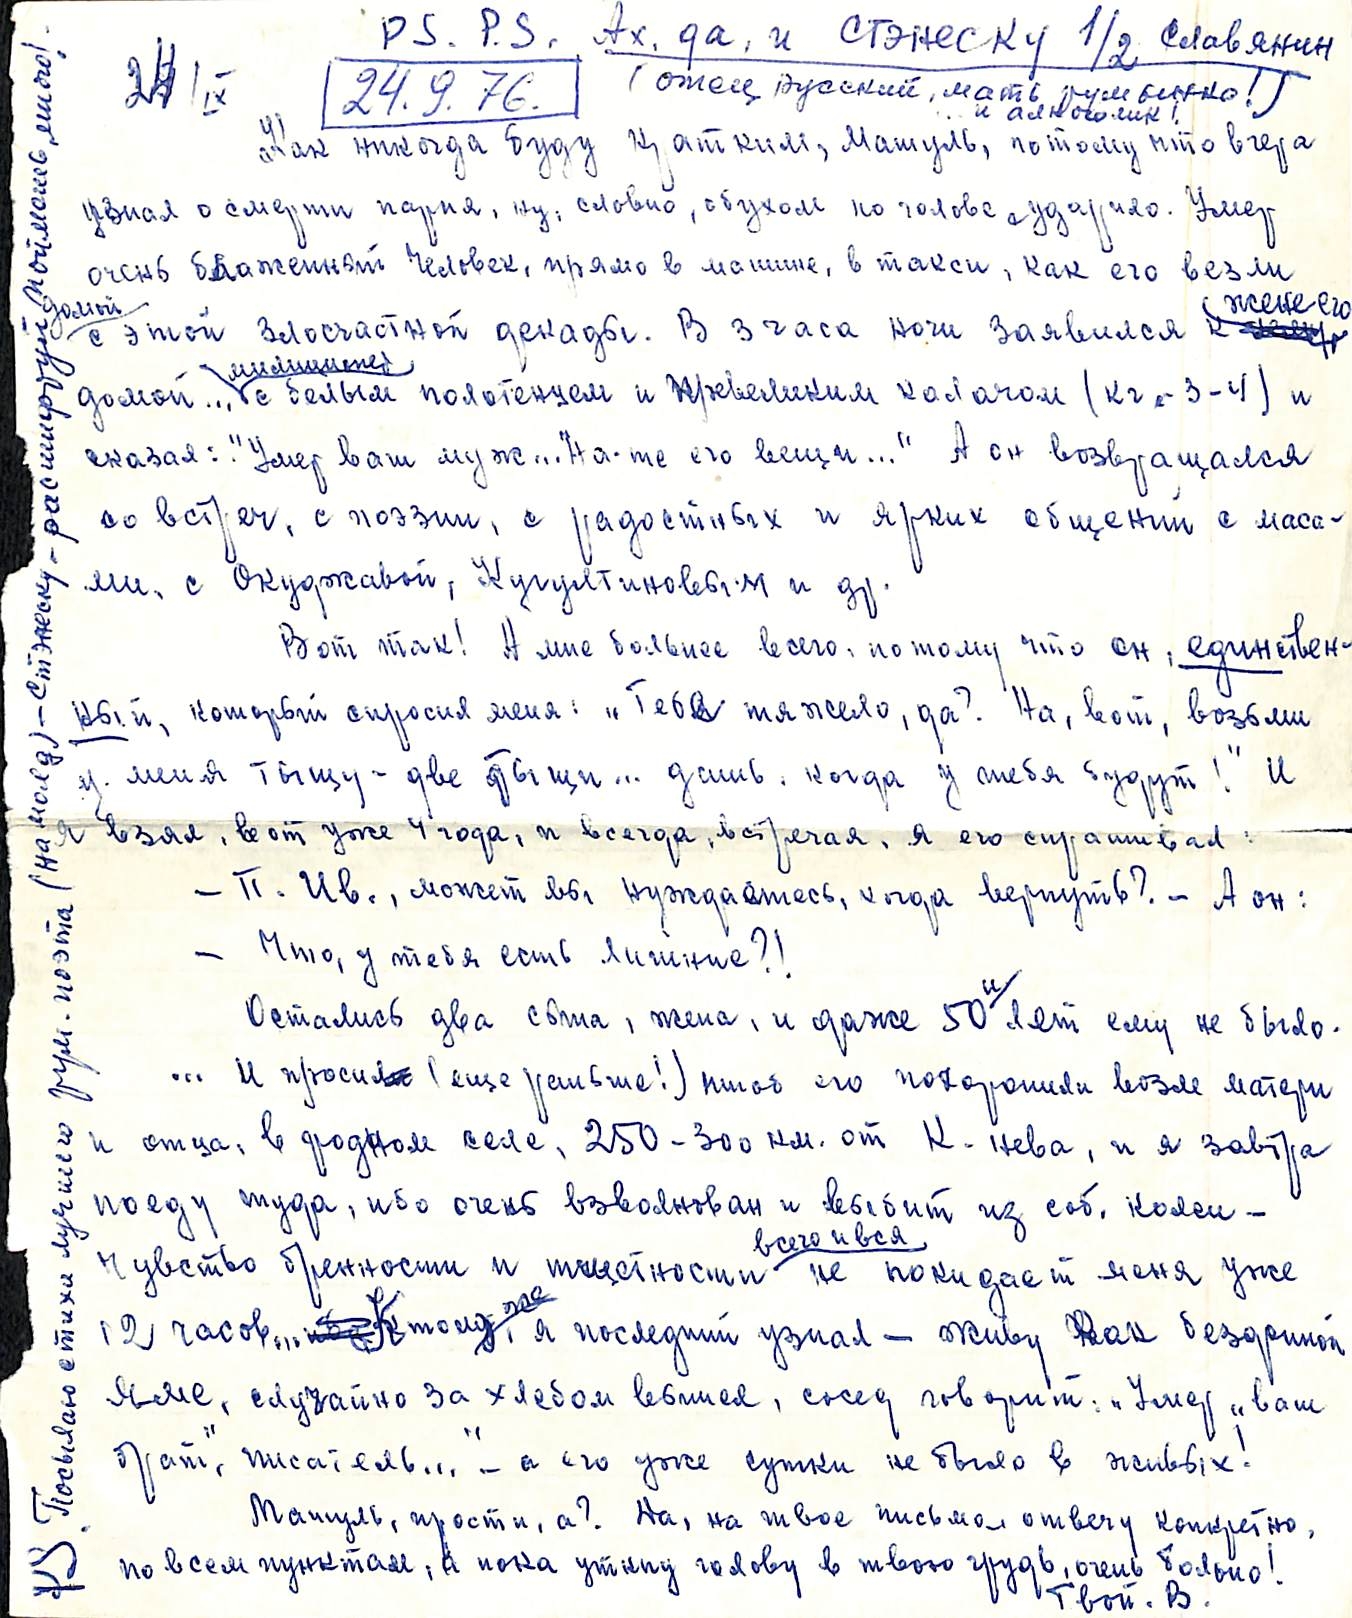 PS. P.S. Ах, да, и Стэнеску 1/2 Славянин
(отец русский, мать румынка!)
... и алкоголик!
24/IX
24.9.76.
Как никогда буду кратким, Машуль, потому что вчера
узнал о смерти парня, ну, словно, обухом по голове ударило. Умер
очень блаженный человек, прямо в машине, в такси, как его везли
домой
с этой злосчастной декады. В 3 часа ночи заявился к жене его
домой... милиционер с белым полотенцем и превеликим калачом (кг.-3-4) и
сказал: "Умер ваш муж... На-те его вещи..." А он возвращался
со встреч, с поэзии, с радостных и ярких общений с маса-
ми, с Окуджавой, Кугультиновым и др.
Вот так! А мне больнее всего, потому что он, единствен-
ный, который спросил меня: "Тебе тяжело, да? На, вот, возьми
у меня тыщу-две тыщи... дашь, когда у тебя будут!" И
я взял, вот уже 4 года, и всегда, встречая, я его спрашивал:
– П. Ив., может вы нуждаетесь, когда вернуть? – А он:
– Что, у тебя есть лишние?!
Остались два сына, жена, и даже 50и лет ему не было.
... И просил (еще раньше!) чтоб его похоронили возле матери
и отца, в родном селе, 250-300 км. от К-нева, и я завтра
поеду туда, ибо очень взволнован и выбит из соб. колеи –
чувство бренности и тщетности всего и вся не покидает меня уже
12 часов... К тому же, я последний узнал – живу как в бездонной
яме, случайно за хлебом вышел, сосед говорит: "Умер "ваш
брат", писатель..." – а его уже сутки не было в живых!
Машуль, прости, а? На, на твое письмо отвечу конкретно,
по всем пунктам, а пока уткну голову в твою грудь, очень больно!
Твой. В.
PS. Посылаю стихи лучшего рум. поэта (на молд) – Стэнеску – расшифруй! Поймешь, личо!